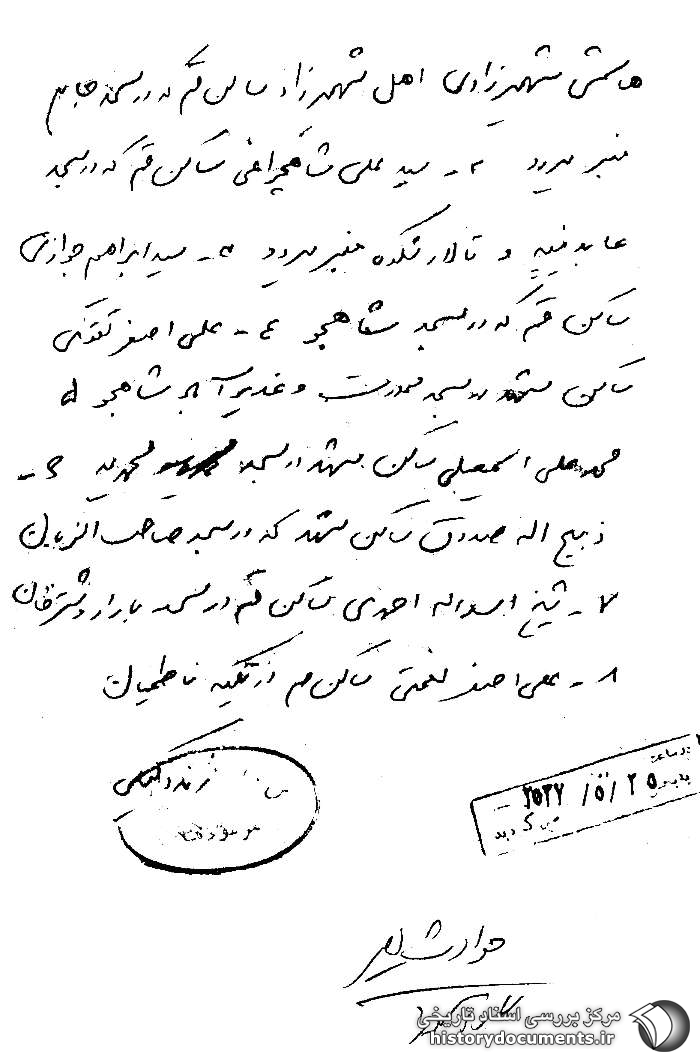 هاشمی شهمیرزادی اهل شهمیرزاد ساکن قم که در مسجد جامع
منبر میرود ۲ـ سید علی شاهچراغی ساکن قم که در مسجد
عابدینیه و تالار منبر میرود ۳ـ سید ابراهیم
ساکن قم که در مسجد شاهجو ۴ـ علی اصغر
ساکن مشهد در مسجد و شاهجو ۵
محمد علی اسمعیلی ساکن مشهد در مسجد محمدیه ۶ـ
ذبیح اله صدوق ساکن مشهد که در مسجد صاحب الزمان
۷ـ شیخ اسداله احمدی ساکن قم در مسجد بازار
۸ـ علی اصغر نعمتی ساکن قم در تکیه ناظمیان
۲۵ /۵/ ۲۵۳۷
گردید
مرکز بررسی اسناد تاریخی
historydocuments.ir